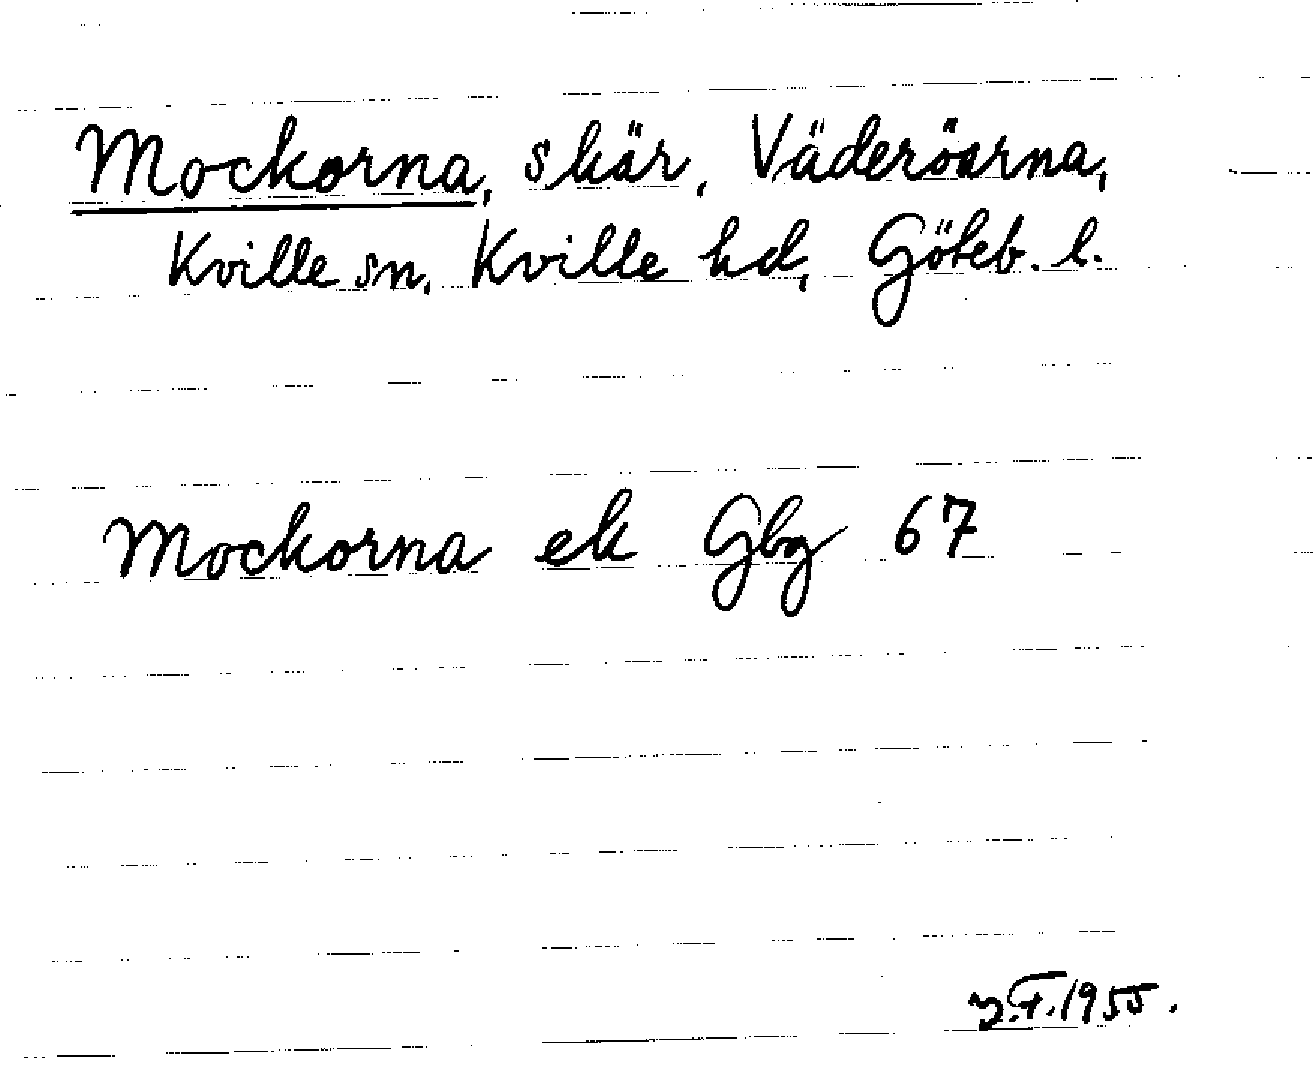 Mockorna, skär, Väderöarna,
Kville sn, Kville hd, Göteb. l.
Mockorna ek Gbg 67
1955.